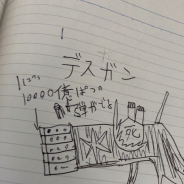 デスガン
1ぱつ
10000億ぱつの
弾がでる